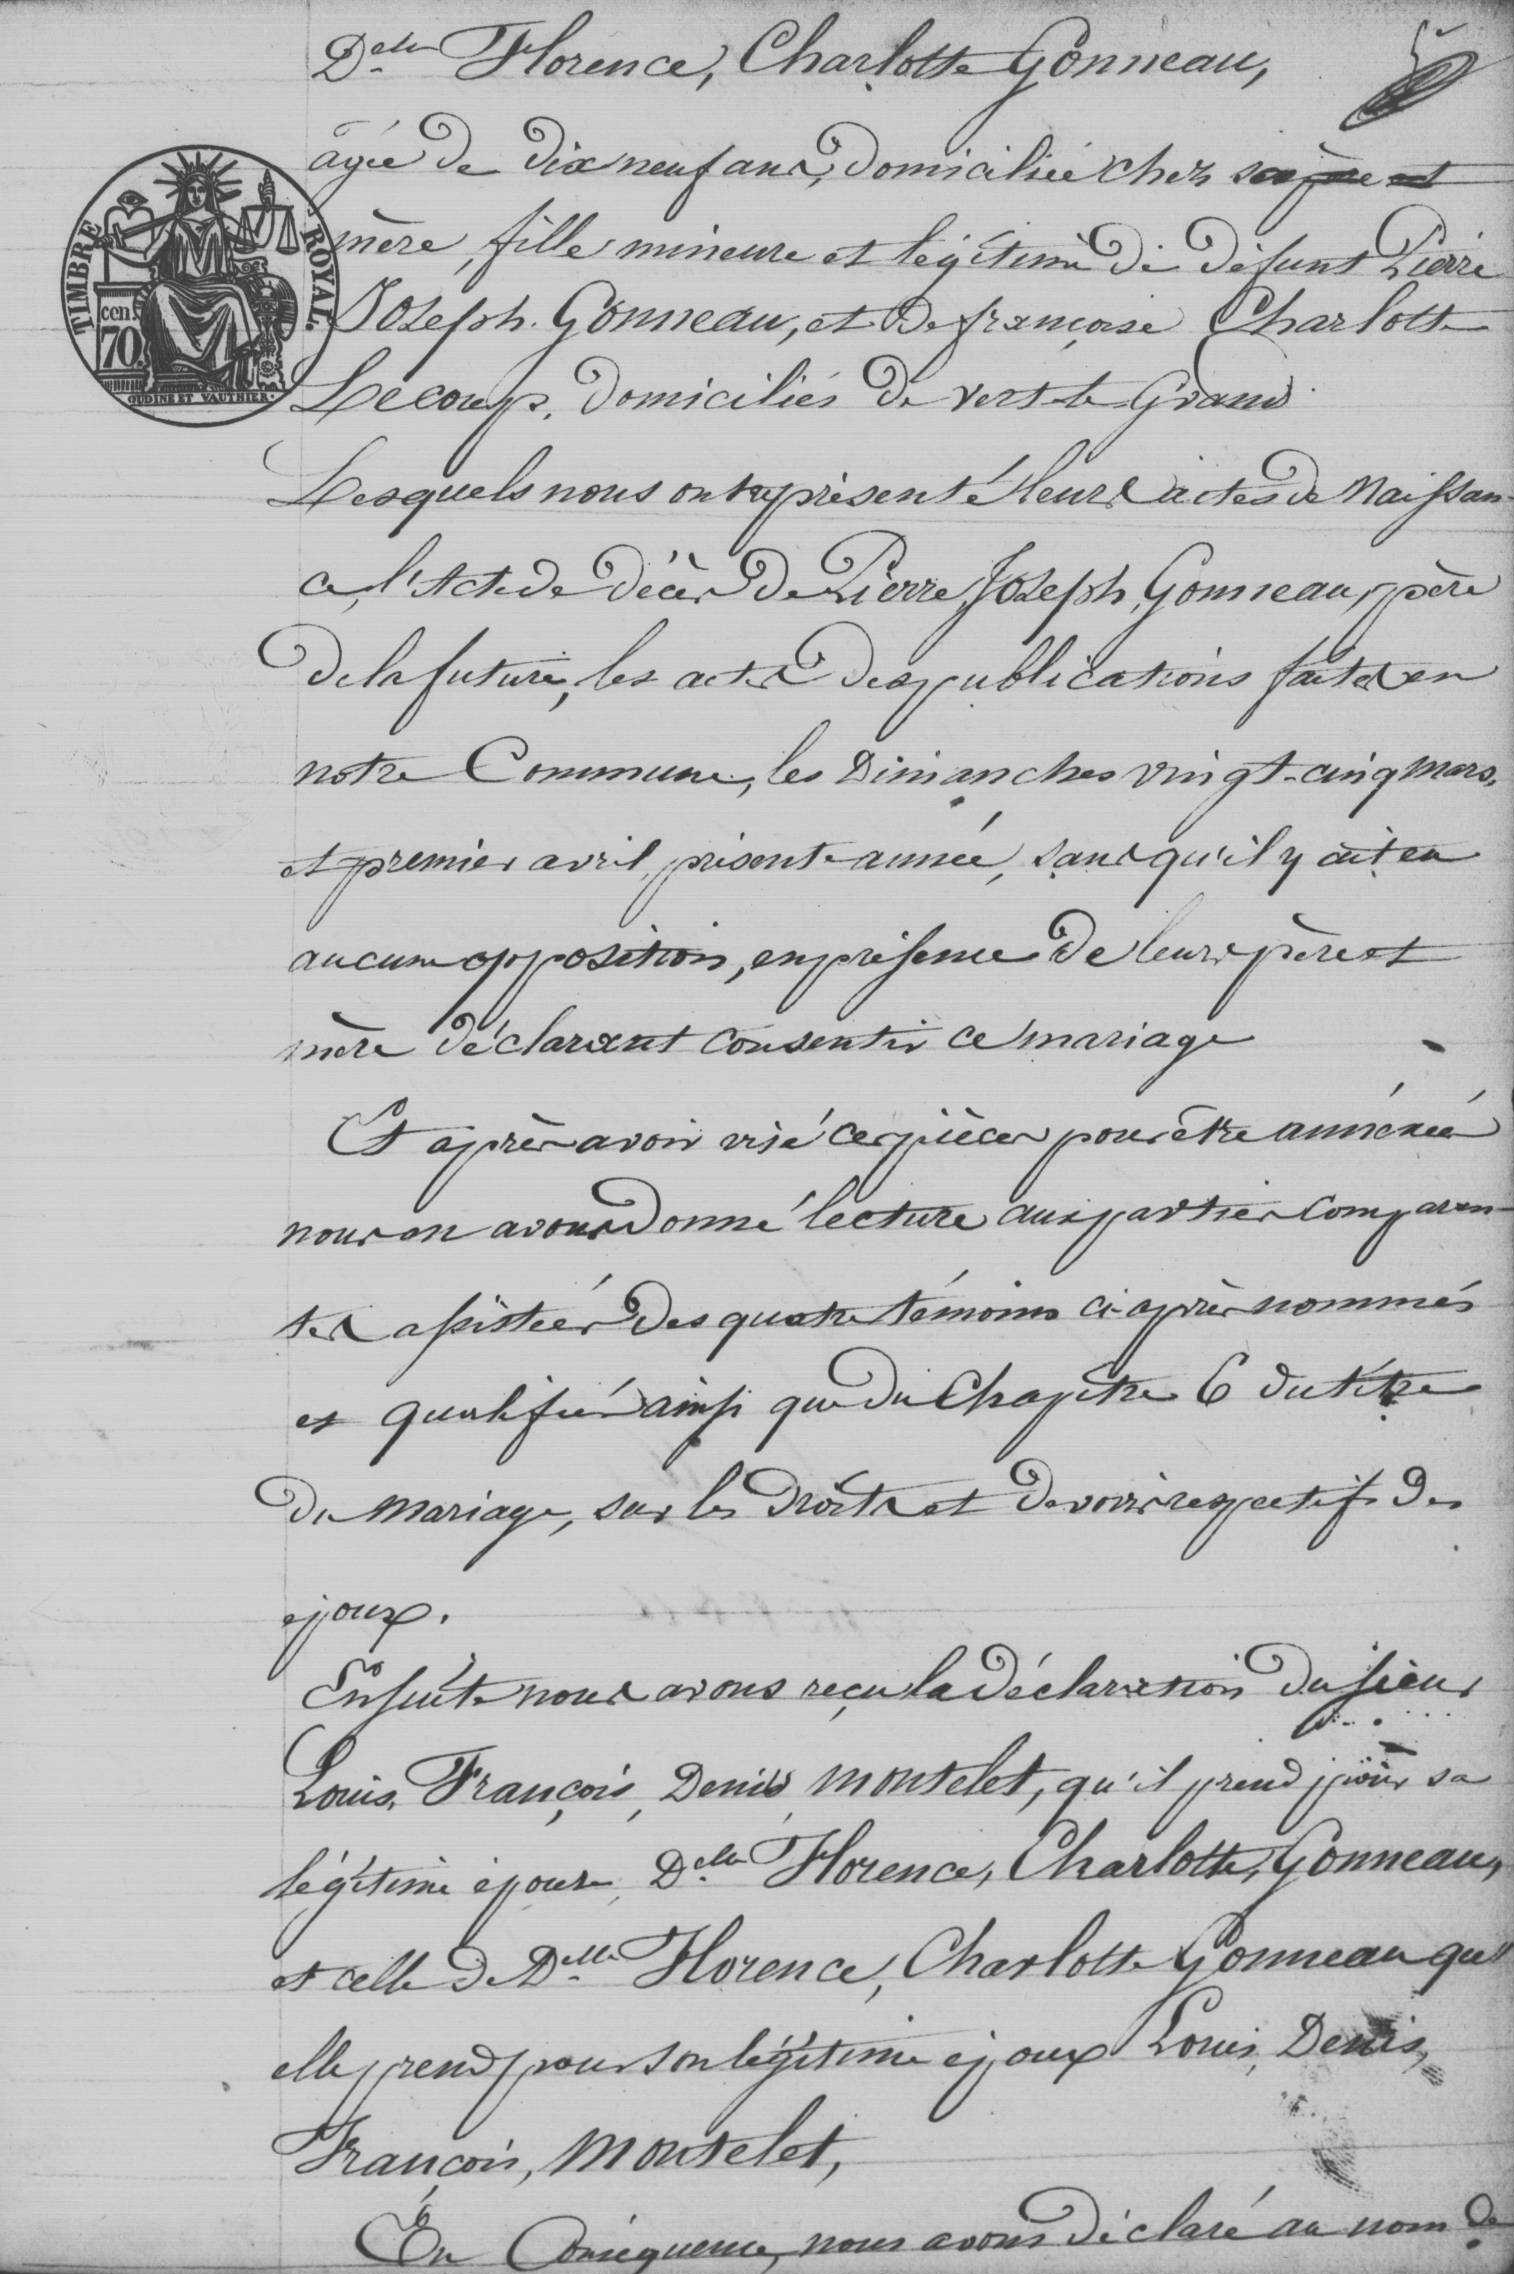 Delle Florence, Charlotte Gonneau,
5
âgée de dix neuf ans, domiciliée chez sa père et
mère, fille mineure et légitime de défunt Pierre
Joseph Gonneau, et de françoise Charlotte
Lecoup, domiciliés de vert-le-Grand
TIMBRE ROYAL.
cen. 70.
OUDINE ET VAUTHIER.
Lesquels nous ont représenté leurs actes de Naissan-
ce, l'Acte de décès de Pierre Joseph Gonneau, père
de la future, les actes des publications faites en
notre Commune, les Dimanches vingt-cinq mars,
et premier avril, présente année, sans qu'il y ait eu
aucune opposition, en présence de leurs père et
mère déclarant consentir ce mariage
Et après avoir visé ces pièces pour être annexées
nous en avons donné lecture aux parties comparan-
tes assistées des quatre témoins ci-après nommés
et qualifiés ainsi que du Chapitre 6 du titre
du Mariage, sur les droits et devoirs respectifs des
époux.
Ensuite nous avons reçu la déclaration du sieur
Louis, François, Denis Montelet, qu'il prend pour sa
légitime épouse, Delle Florence, Charlotte, Gonneau,
et celle de Delle Florence, Charlotte Gonneau qu'
elle prend pour son légitime époux Louis, Denis,
François, Montelet,
En Conséquence, nous avons déclaré au nom de